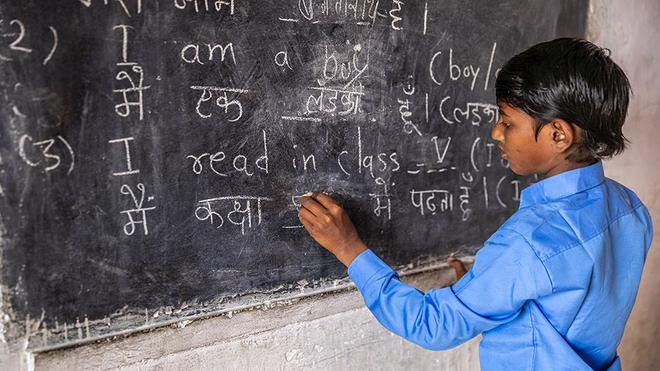 नाम है।
(2) I am a boy (boy/
मैं एक लड़का हूँ ।
(3) I read in class V
मैं कक्षा में पढ़ता हूँ ।